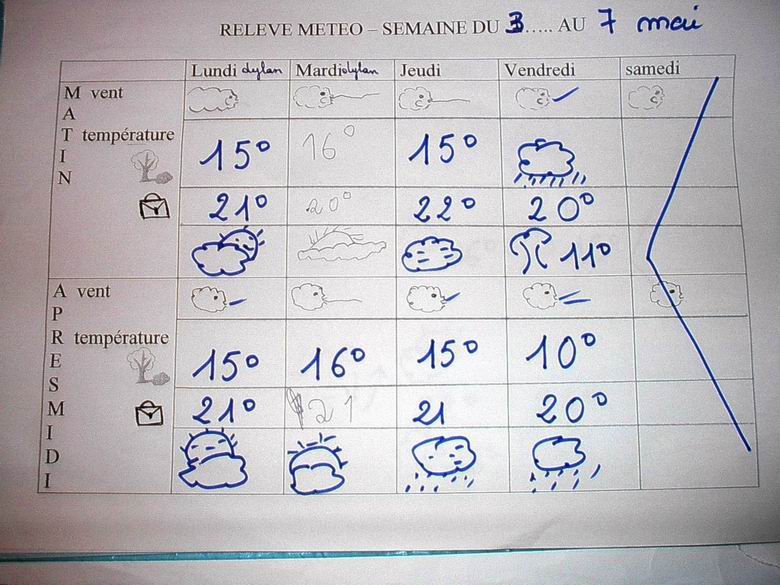 RELEVE METEO – SEMAINE DU 3..... AU 7 mai
Lundi dylan Mardi dylan Jeudi Vendredi samedi
MATIN
vent
température
15° 16° 15°
21° 20° 22° 20°
11°
APRES MIDI
vent
température
15° 16° 15° 10°
21° 21 21 20°